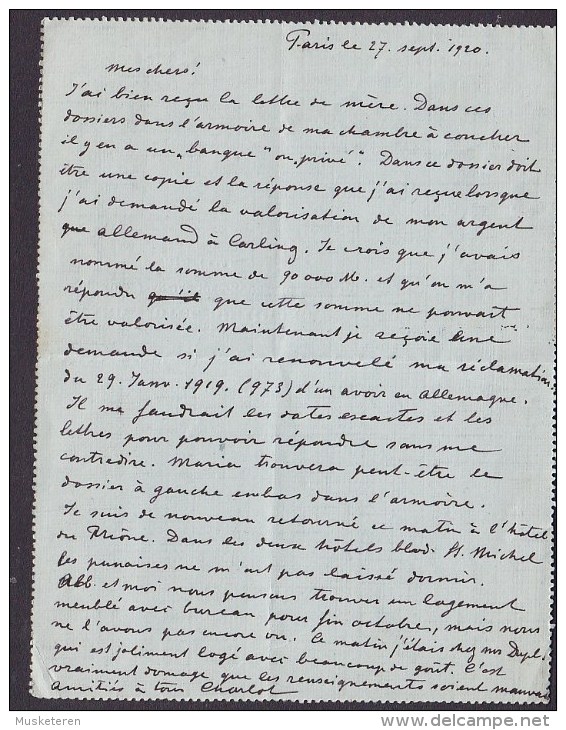 Paris le 27. sept. 1920.
Mes chers!
J'ai bien reçu la lettre de mère. Dans ces
dossiers dans l'armoire de ma chambre à coucher
il y en a un „banque" ou „privé". Dans ce dossier doit
être une copie et la réponse que j'ai reçue lorsque
j'ai demandé la valorisation de mon argent
que allemand à Carling. Je crois que j'avais
nommé la somme de 90000 M. et qu'on m'a
répondu qu'il que cette somme ne pouvait
être valorisée. Maintenant je reçois une
demande si j'ai renouvelé ma réclamation
du 29. Janv. 1919. (973) d'un avoir en Allemagne.
Il me faudrait les dates exactes et les
lettres pour pouvoir répondre sans me
contredire. Maria trouvera peut-être le
dossier à gauche en bas dans l'armoire.
Je suis de nouveau retourné ce matin à l'hôtel
du Rhône. Dans les deux hôtels blvd. St. Michel
les punaises ne m'ont pas laissé dormir.
Alb. et moi nous pensons trouver un logement
meublé avec bureau pour fin octobre, mais nous
ne l'avons pas encore vu. Ce matin j'étais chez Mr Dupl.
qui est joliment logé avec beaucoup de goût. C'est
vraiment domage que les renseignements soient mauvais
Amitiés à tous Charlot
Musketeren
delcampe.net